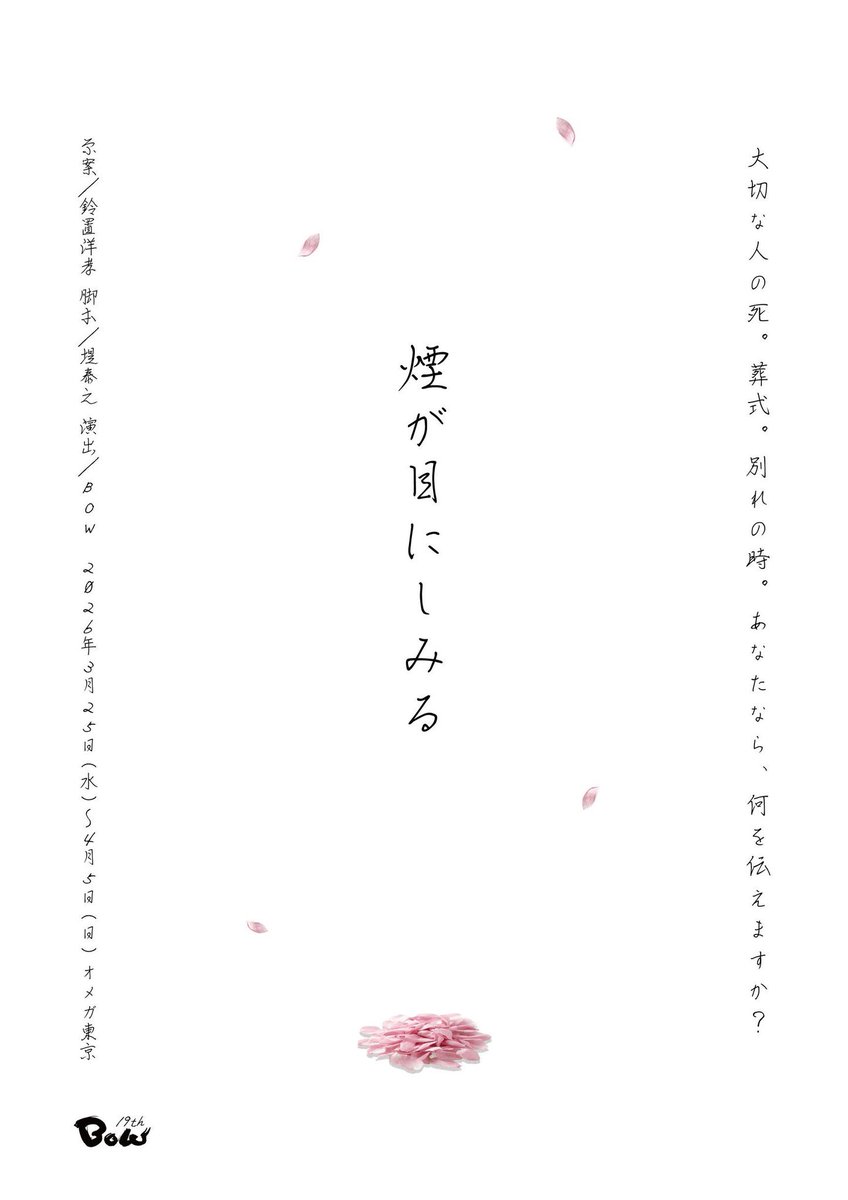 大切な人の死。葬式。別れの時。あなたなら、何を伝えますか?
煙が目にしみる
原案/鈴置洋孝 脚本/堤泰之 演出/BOW 2026年3月25日(水)~4月5日(日)オメガ東京
19th
BOW